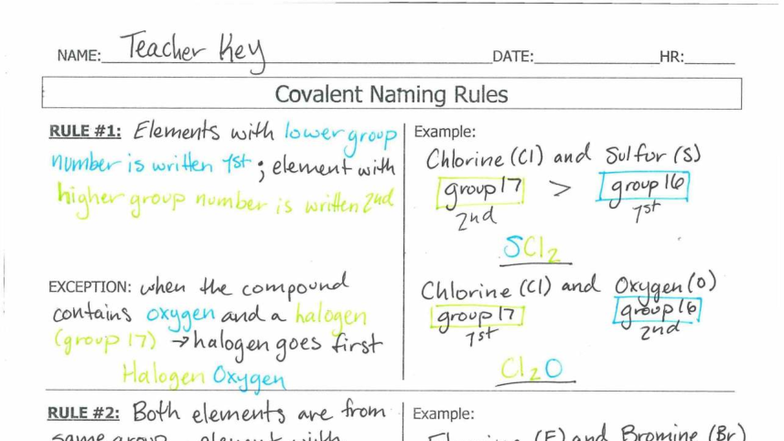 NAME: Teacher Key DATE: HR:
Covalent Naming Rules
RULE #1: Elements with lower group
number is written 1st; element with
higher group number is written 2nd
Example:
Chlorine (Cl) and Sulfur (S)
group 17 > group 16
2nd 1st
SCl2
EXCEPTION: when the compound
contains oxygen and a halogen
(group 17) → halogen goes first
Halogen Oxygen
Chlorine (Cl) and Oxygen (O)
group 17 group 16
1st 2nd
Cl2O
RULE #2: Both elements are from
same group element with
Example:
(F) and Bromine (Br)